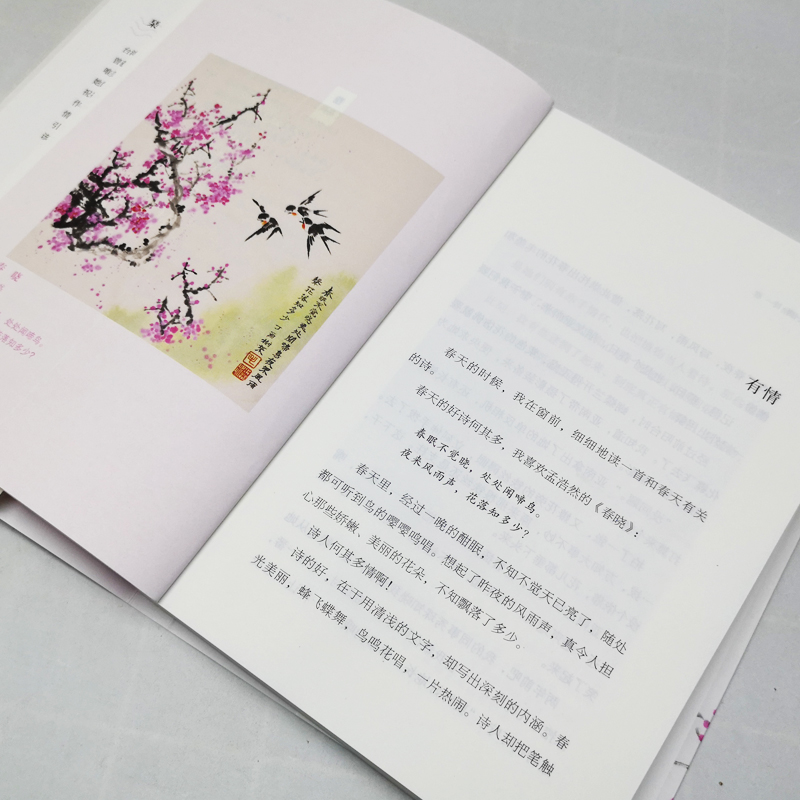 春晓
处处闻啼鸟。
花落知多少?
春眠不觉晓处处闻啼鸟夜来风雨
声花落知多少
有情
春天的时候,我在窗前,细细地读一首和春天有关
的诗。
春天的好诗何其多,我喜欢孟浩然的《春晓》:
春眠不觉晓,处处闻啼鸟。
夜来风雨声,花落知多少?
春天里,经过一晚的酣眠,不知不觉天已亮了,随处
都可听到鸟的嘤嘤鸣唱。想起了昨夜的风雨声,真令人担
心那些娇嫩、美丽的花朵,不知飘落了多少。
诗人何其多情啊!
诗的好,在于用清浅的文字,却写出深刻的内涵。春
光美丽,蜂飞蝶舞,鸟鸣花唱,一片热闹。诗人却把笔触